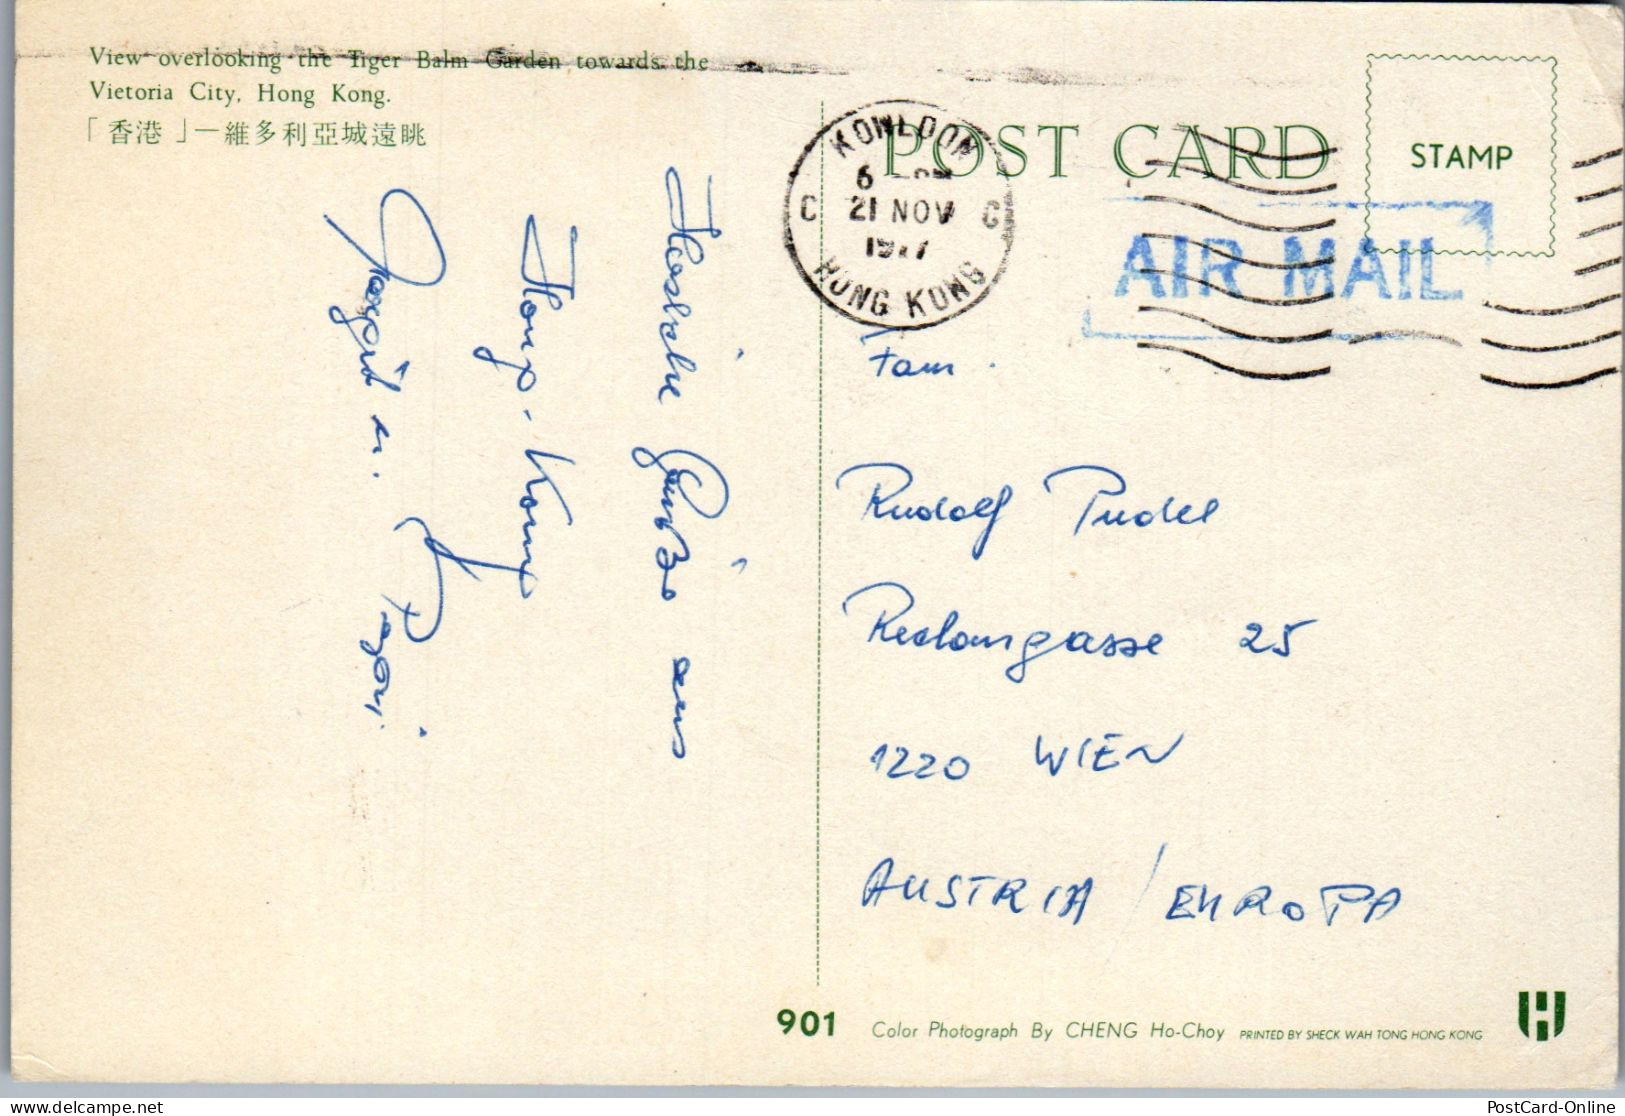 View overlooking the Tiger Balm Garden towards the
Vietoria City, Hong Kong.
「香港」—維多利亞城遠眺
POST CARD
STAMP
KOWLOON
6
C 21 NOV C
1977
HONG KONG
AIR MAIL
Herzliche Grüße aus
Hong-Kong
Fam.
Rudolf Pudel
1220 WIEN
AUSTRIA / EUROPA
901 Color Photograph By CHENG Ho-Choy PRINTED BY SHECK WAH TONG HONG KONG
delcampe.net
PostCard-Online